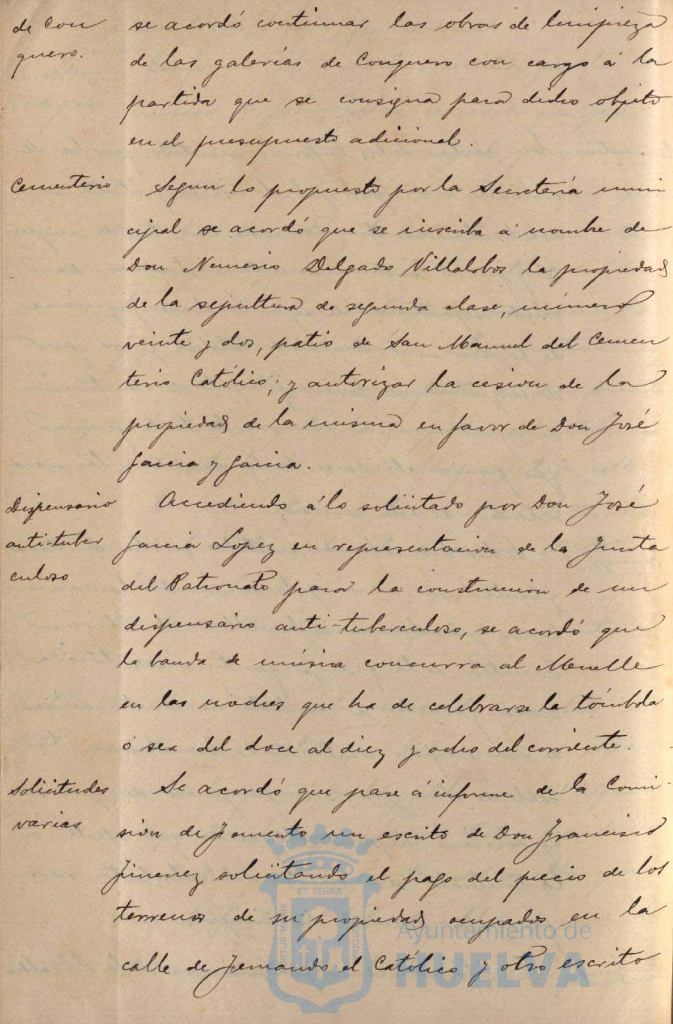 de Con
quero.
se acordó continuar las obras de limpieza
de las galerías de Conquero con cargo á la
partida que se consigna para dicho objeto
en el presupuesto adicional.
Cementerio
Segun lo propuesto por la Secretería muni
cipal se acordó que se inscriba á nombre de
Don Nemesio Delgado Villalobos la propiedad
de la sepultura de segunda clase, número
veinte y dos, patio de San Manuel del Cemen
terio Católico; y autorizar la cesion de la
propiedad de la misma en favor de Don José
Garcia y Garcia.
Dispensario
anti-tuber
culoso
Accediendo á lo solicitado por Don José
Garcia Lopez en representacion de la Junta
del Patronato para la construccion de un
dispensario anti-tuberculoso, se acordó que
la banda de música concurra al Muelle
en las noches que ha de celebrarse la tómbola
ó sea del doce al diez y ocho del corriente.
Solicitudes
varias
Se acordó que pase á informe de la Comi-
sion de Fomento un escrito de Don Francisco
Jimenez solicitando el pago del precio de los
terrenos de su propiedad ocupados en la
calle de Fernando el Católico y otro escrito
Ayuntamiento de
HUELVA